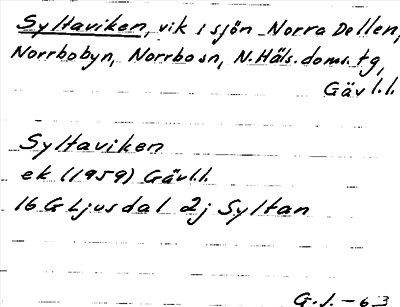 Syltaviken, vik i sjön Norra Dellen,
Norrbobyn, Norrbo sn, N. Häls. doms. tg,
Gäv l.l.
Syltaviken
ek (1959) Gävl.l.
16 G Ljusdal 2j Syltan
G.J. - 63